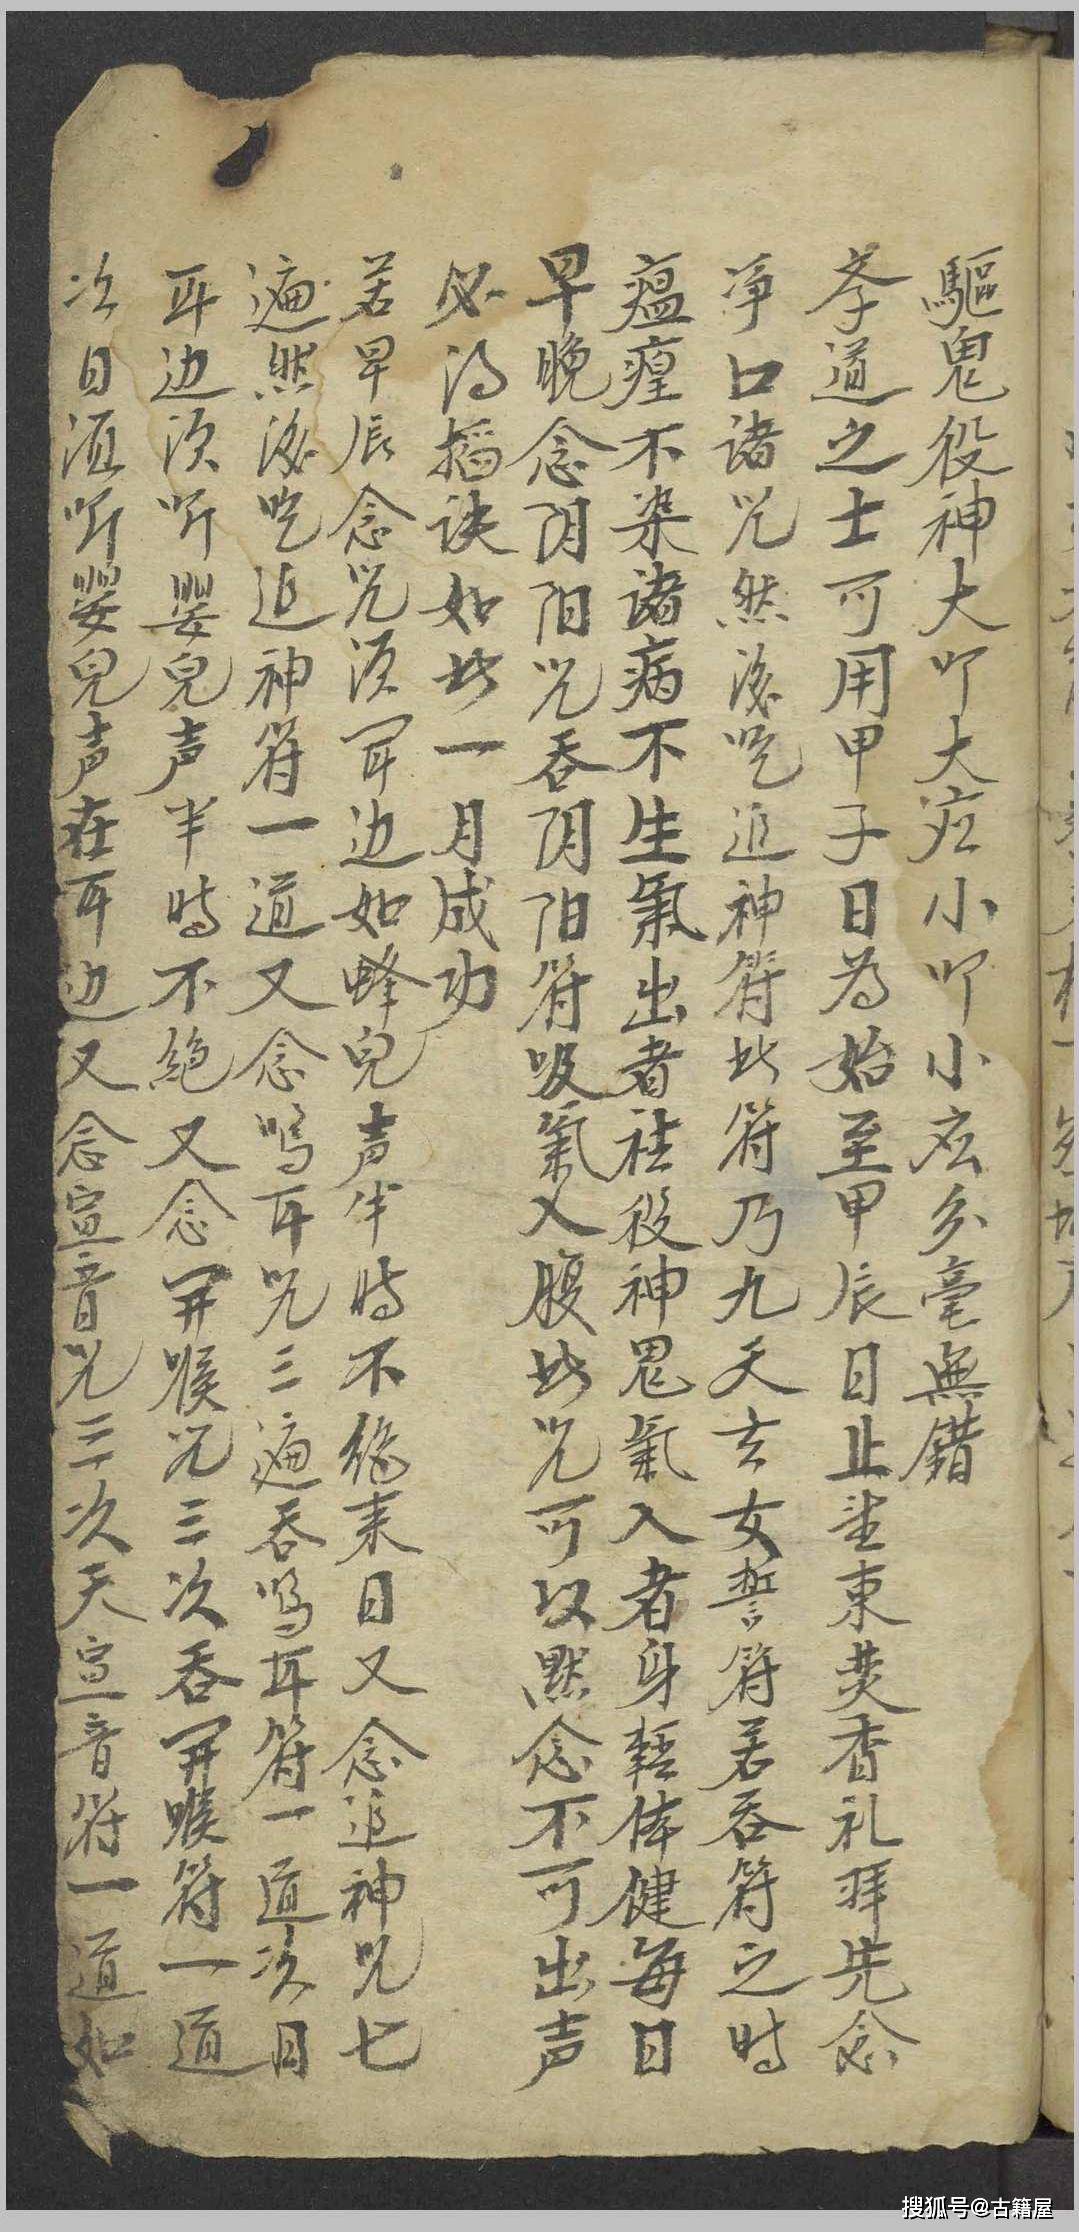 驅鬼役神大叩大应小叩小应分毫無錯
孝道之士可用甲子日為始至甲辰日止坐東焚香礼拜先念
净口諸咒然後吃追神符此符乃九天玄女誓符若吞符之時
瘟癀不染諸病不生氣出者祛役神鬼氣入者身輕体健每日
早晚念阴阳咒吞阴阳符吸氣入腹此咒可以默念不可出声
必得搯诀如此一月成功
若早辰念咒须耳边如蜂兒声半時不绝末日又念追神咒七
遍然後吃追神符一道又念鸣耳咒三遍吞鸣耳符一道次日
耳边须听嬰兒声半時不絶又念開喉咒三次吞開喉符一道
次日須听嬰兒声在耳边又念宣音咒三次天宣音符一道如
搜狐号@古籍屋